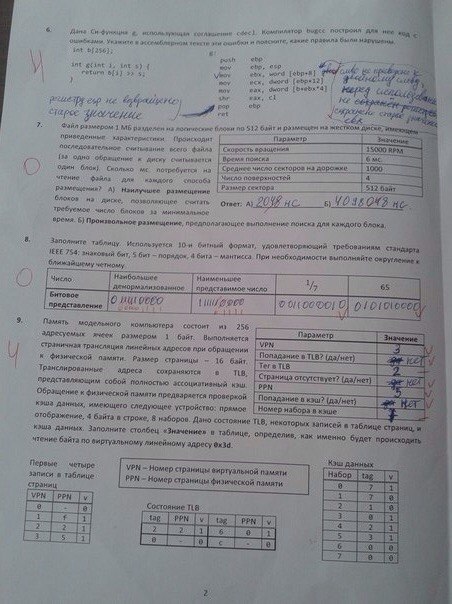 6. Дана Си-функция g, использующая соглашение cdecl. Компилятор bugcc построил для нее код с
ошибками. Укажите в ассемблерном тексте эти ошибки и поясните, какие правила были нарушены.
int b[256];
int g(int i, int s) {
return b[i] >> s;
}
g:
push ebp
mov ebp, esp
mov ebx, word [ebp+8]
mov ecx, dword [ebp+12]
mov eax, dword [b+ebx*4]
shr eax, cl
pop ebp
ret
4
регистру не возвращено
старое значение
перед использованием
7. Файл размером 1 Мб разделен на логические блоки по 512 байт и размещен на жестком диске, имеющем
приведенные характеристики. Происходит
последовательное считывание всего файла
(за одно обращение к диску считывается
один блок). Сколько мс потребуется на
чтение файла для каждого способа
размещения? А) Наилучшее размещение
блоков на диске, позволяющее считать
требуемое число блоков за минимальное
время. Б) Произвольное размещение, предполагающее выполнение поиска для каждого блока.
Параметр Значение
Скорость вращения 15000 RPM
Время поиска 6 мс
Среднее число секторов на дорожке 1000
Число поверхностей 4
Размер сектора 512 байт
Ответ: А) 2048 нс Б) 4098048 нс
0
8. Заполните таблицу. Используется 10-и битный формат, удовлетворяющий требованиям стандарта
IEEE 754: знаковый бит, 5 бит – порядок, 4 бита – мантисса. При необходимости выполняйте округление к
ближайшему четному.
Число Наибольшее денормализованное Наименьшее представимое число 1/7 65
Битовое представление 0111110000 1111110000 0011000010 0101010000
0
9. Память модельного компьютера состоит из 256
адресуемых ячеек размером 1 байт. Выполняется
страничная трансляция линейных адресов при обращении
к физической памяти. Размер страницы – 16 байт.
Транслированные адреса сохраняются в TLB,
представляющим собой полностью ассоциативный кэш.
Обращение к физической памяти предваряется проверкой
кэша данных, имеющего следующее устройство: прямое
отображение, 4 байта в строке, 8 наборов. Дано состояние TLB, некоторых записей в таблице страниц, и
кэша данных. Заполните столбец «Значение» в таблице, определив, как именно будет происходить
чтение байта по виртуальному линейному адресу 0x3d.
4
Параметр Значение
VPN 3
Попадание в TLB? (да/нет) нет
Тег в TLB 2
Страница отсутствует? (да/нет) нет
PPN 5
Попадание в кэш? (да/нет) нет
Номер набора в кэше 7
Первые четыре
записи в таблице
страниц
VPN PPN v
0 - 0
1 f 1
2 2 1
3 5 1
VPN – Номер страницы виртуальной памяти
PPN – Номер страницы физической памяти
Состояние TLB
tag PPN v tag PPN v
2 2 1 6 0 1
0 0 c - 0
Кэш данных
Набор tag v
0 7 1
1 7 0
2 1 0
3 0 1
4 2 1
5 3 1
6 0 0
7 0 0
2